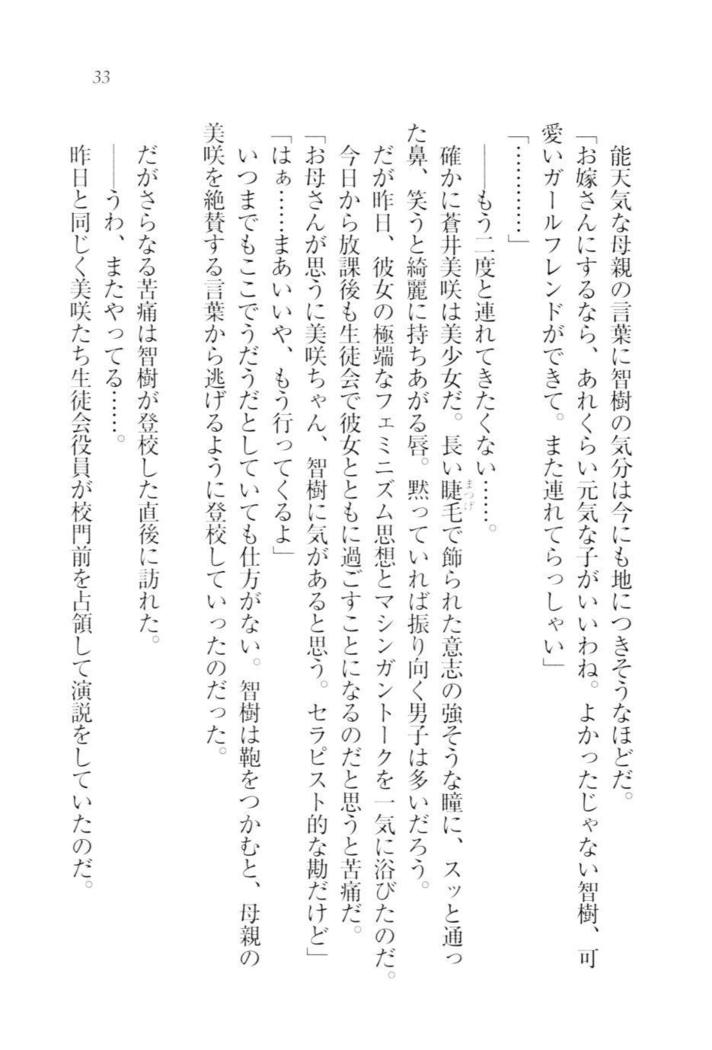 33
能天気な母親の言葉に智樹の気分は今にも地につきそうなほどだ。
「お嫁さんにするなら、あれくらい元気な子がいいわね。よかったじゃない智樹、可
愛いガールフレンドができて。また連れてらっしゃい」
「…………」
――もう二度と連れてきたくない……。
確かに蒼井美咲は美少女だ。長い睫毛で飾られた意志の強そうな瞳に、スッと通っ
まつげ
た鼻、笑うと綺麗に持ちあがる唇。黙っていれば振り向く男子は多いだろう。
だが昨日、彼女の極端なフェミニズム思想とマシンガントークを一気に浴びたのだ。
今日から放課後も生徒会で彼女とともに過ごすことになるのだと思うと苦痛だ。
「お母さんが思うに美咲ちゃん、智樹に気があると思う。セラピスト的な勘だけど」
「はぁ……まあいいや、もう行ってくるよ」
いつまでもここでうだうだとしていても仕方がない。智樹は鞄をつかむと、母親の
美咲を絶賛する言葉から逃げるように登校していったのだった。
だがさらなる苦痛は智樹が登校した直後に訪れた。
――うわ、またやってる……。
昨日と同じく美咲たち生徒会役員が校門前を占領して演説をしていたのだ。